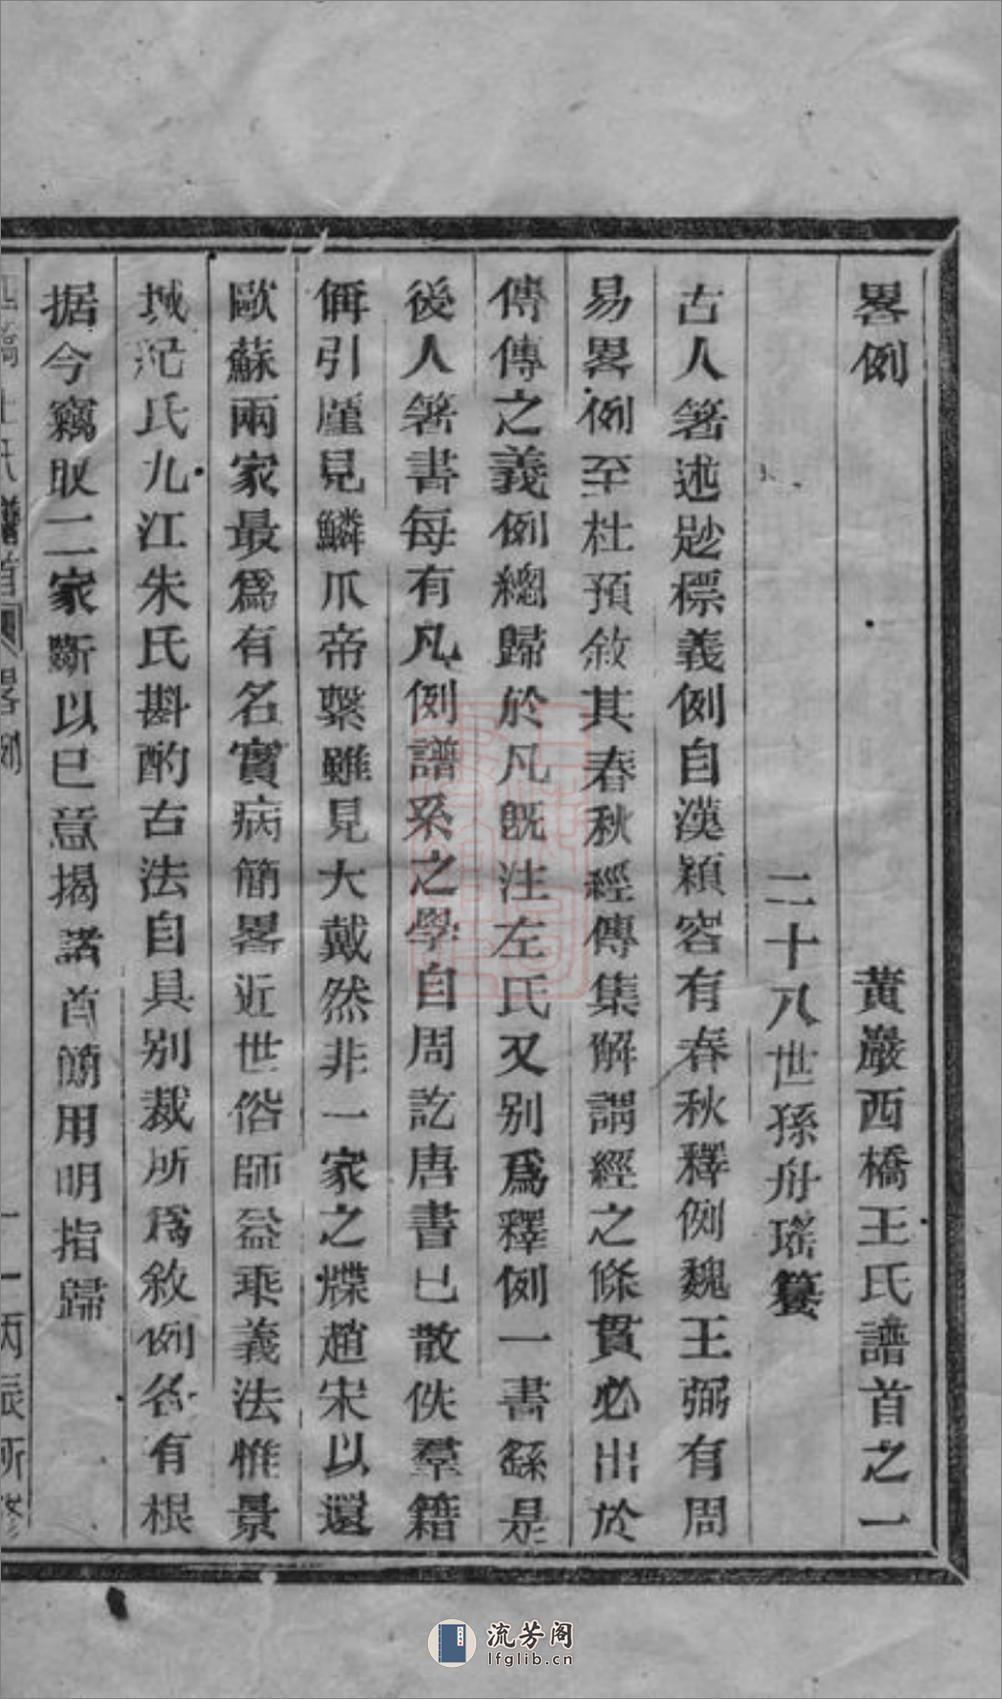 畧例　黃巖西橋王氏譜首之一
二十八世孫舟瑤纂
古人箸述尟標義例自漢穎容有春秋釋例魏王弼有周
易畧例至杜預敘其春秋經傳集解謂經之條貫必出於
傳傳之義例總歸於凡旣注左氏又別爲釋例一書繇是
後人箸書每有凡例譜系之學自周訖唐書已散佚羣籍
偁引廑見鱗爪帝繫雖見大戴然非一家之牒趙宋以還
歐蘇兩家最爲有名實病簡畧近世俗師益乖義法惟景
城紀氏九江朱氏斟酌古法自具別裁所爲敘例各有根
据今竊取二家斷以已意揭諸首簡用明指歸
西橋王氏譜首 畧例 一 丙辰所修
流芳阁
lfglib.cn